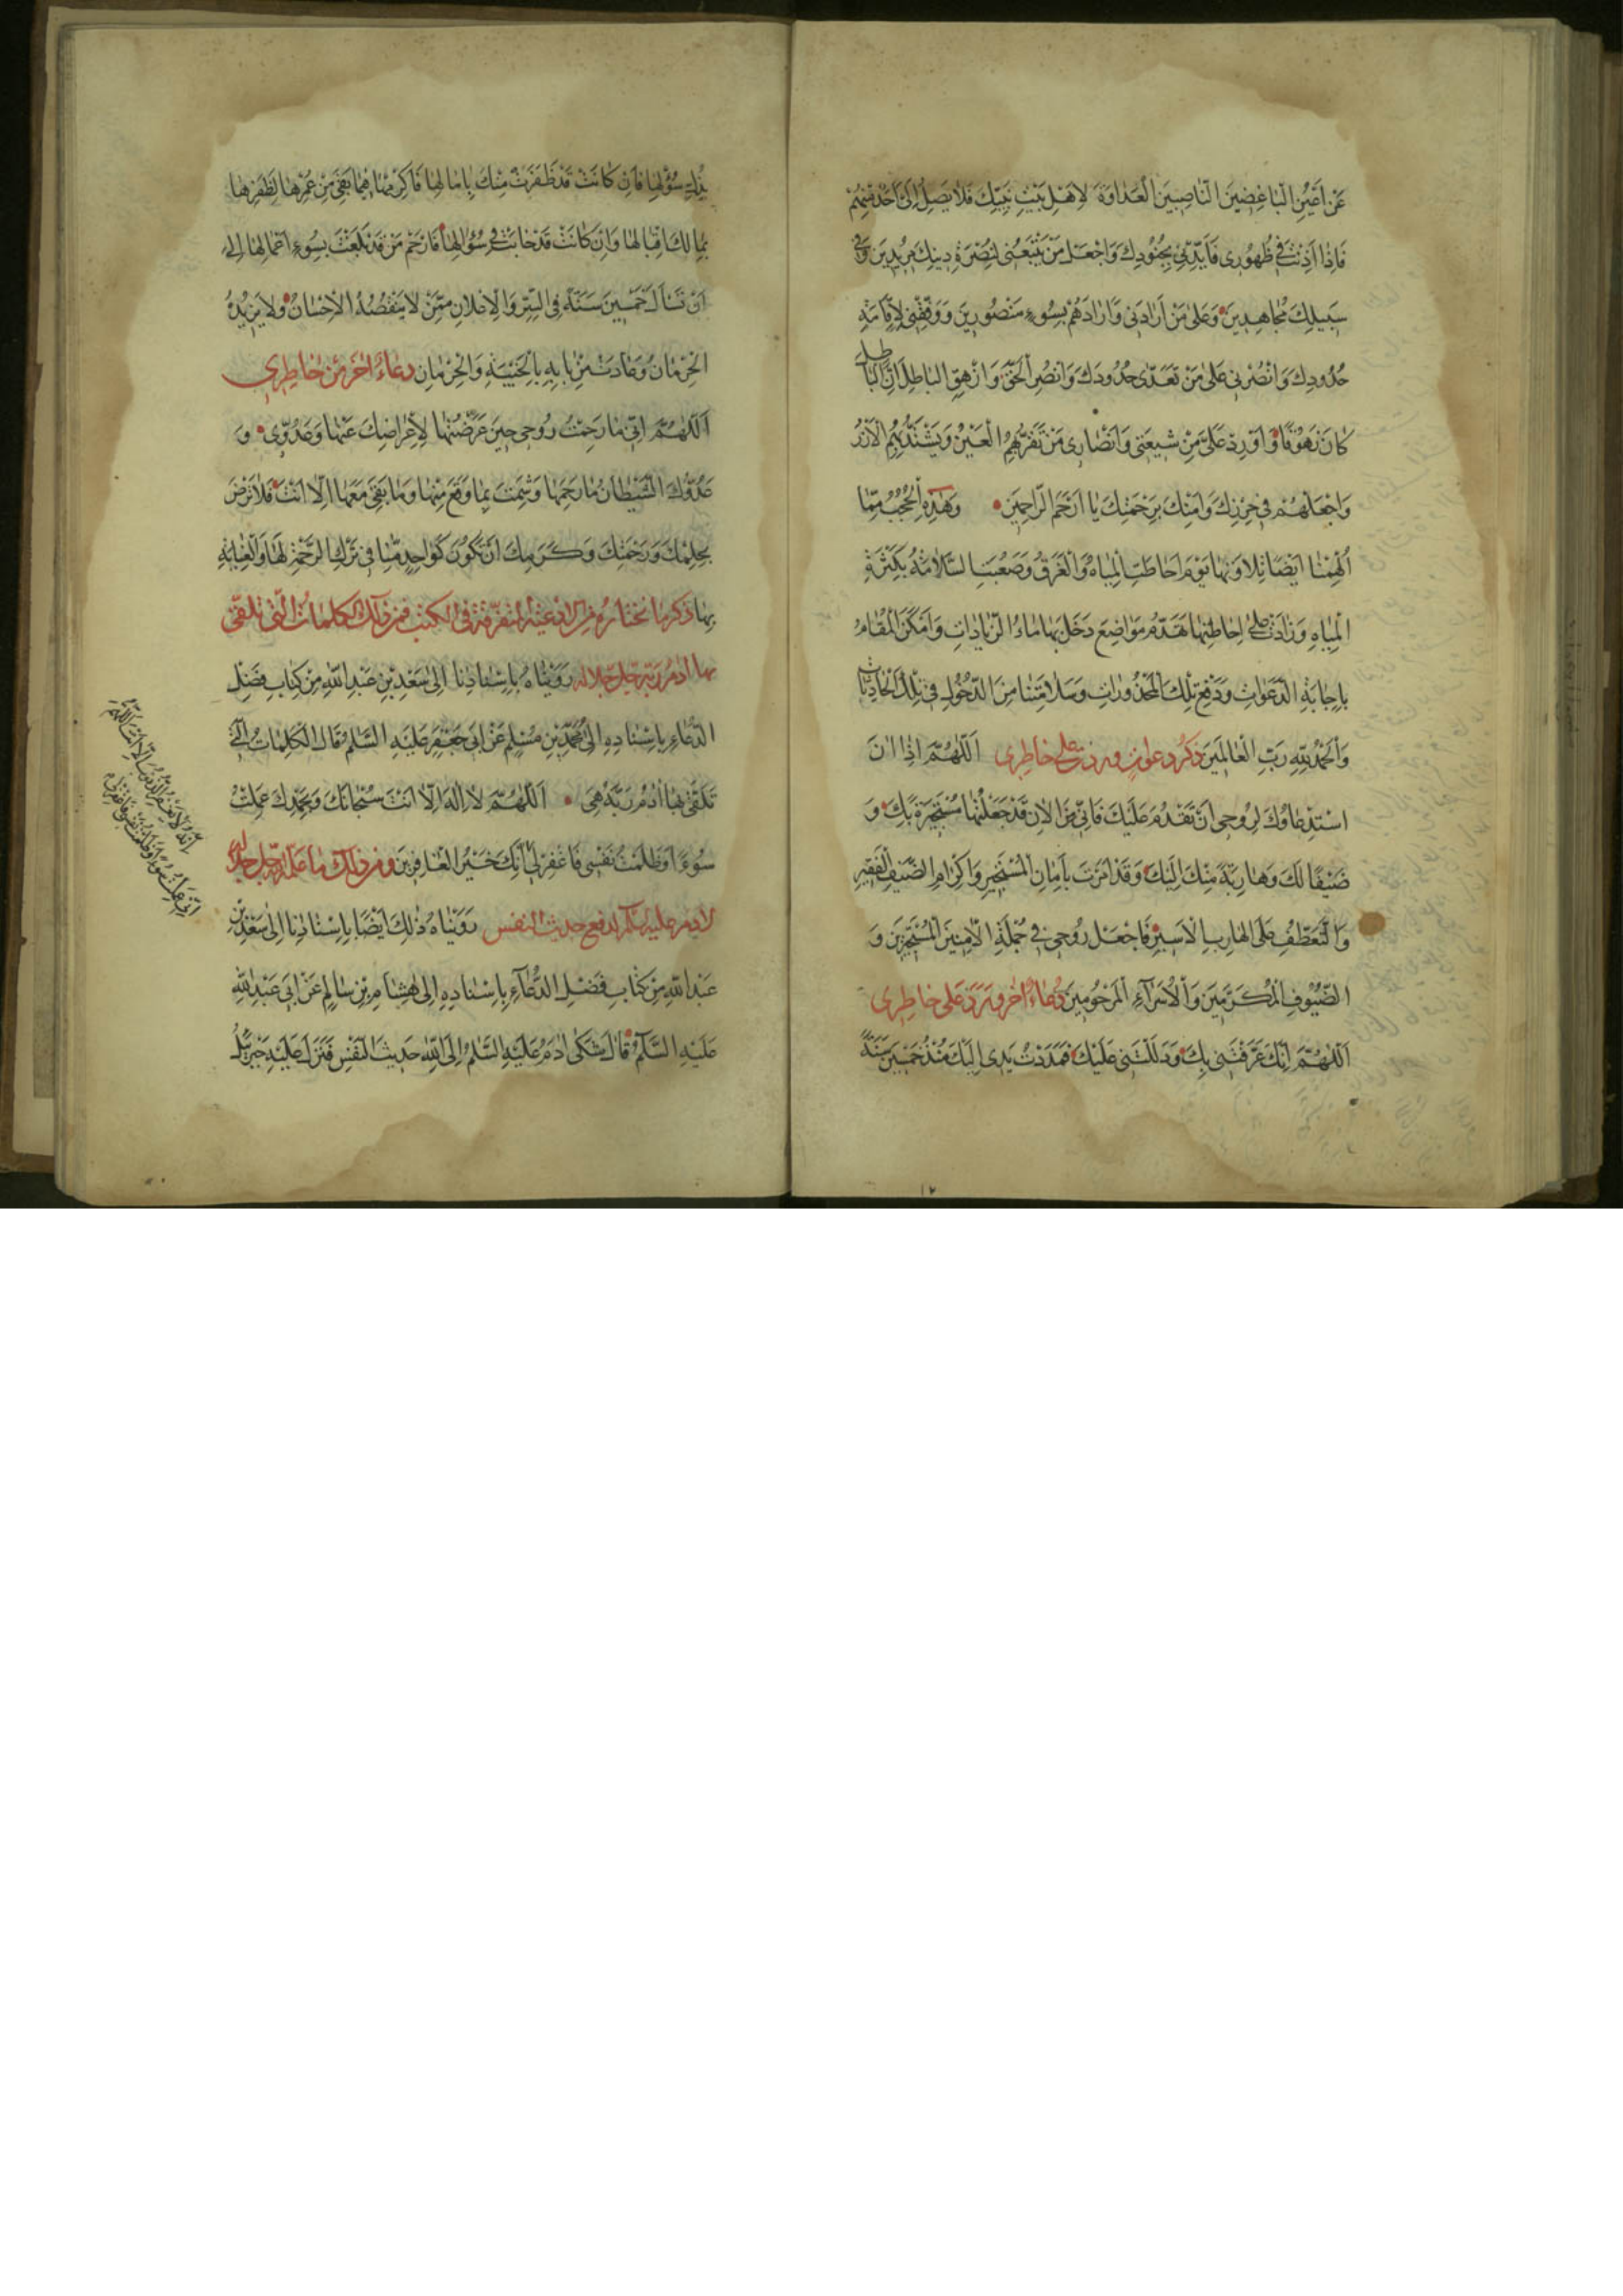 عَنْ اَعْيُنِ الْبَاغِضِينَ النَّاصِبِينَ الْعَدَاوَةَ لِاَهْلِ بَيْتِ نَبِيِّكَ فَلَا يَصِلُ اِلَىَّ اَحَدٌ مِنْهُمْ
فَاِذَا اَذِنْتَ فِي ظُهُورِي فَاَيِّدْنِي بِجُنُودِكَ وَاجْعَلْ مَنْ يَتْبَعُنِي لِنُصْرَةِ دِينِكَ مُرِيدِينَ وَفِي
سَبِيلِكَ مُجَاهِدِينَ وَعَلَى مَنْ اَرَادَنِي وَاَرَادَهُمْ بِسُوءٍ مَنْصُورِينَ وَوَفِّقْنِي لِاِقَامَةِ
حُدُودِكَ وَانْصُرْنِي عَلَى مَنْ تَعَدَّى حُدُودَكَ وَانْصُرِ الْحَقَّ وَازْهِقِ الْبَاطِلَ اِنَّ الْبَاطِلَ
كَانَ زَهُوقًا وَاَوْرِدْ عَلَىَّ مِنْ شِيعَتِي وَاَنْصَارِي مَنْ تَقَرُّ بِهِمُ الْعَيْنُ وَيَشْتَدُّ بِهِمُ الْاَزْرُ
وَاجْعَلْهُمْ فِي حِرْزِكَ وَاَمْنِكَ بِرَحْمَتِكَ يَا اَرْحَمَ الرَّاحِمِينَ وَهٰذِهِ الْحُجُبُ مِمَّا
اُلْهِمْنَا اَيْضًا تِلَاوَتَهَا يَوْمَ اَحَاطَتِ الْمِيَاهُ وَالْغَرَقُ وَصَعُبَتِ السَّلَامَةُ بِكَثْرَةِ
الْمِيَاهِ وَزَادَتْ عَلَى اِحَاطَتِهَا بِهَدْمِ مَوَاضِعَ دَخَلَ بِهَا مَاءُ الزِّيَادَاتِ وَاَمْكَنَ الْمُقَامُ
بِاِجَابَةِ الدَّعَوَاتِ وَدَفْعِ تِلْكَ الْمَحْذُورَاتِ وَسَلَامَتِنَا مِنَ الدُّخُولِ فِي تِلْكَ الْحَادِثَاتِ
وَالْحَمْدُ لِلّٰهِ رَبِّ الْعَالَمِينَ ذكر دعوات وردت على خاطري اَللّٰهُمَّ اِذَا اٰنَ
اسْتِدْعَاؤُكَ لِرُوحِي اَنْ تَقْدُمَ عَلَيْكَ فَاِنِّي مِنَ الْاٰنِ قَدْ جَعَلْتُهَا مُسْتَجِيرَةً بِكَ وَ
ضَيْفًا لَكَ وَهَارِبَةً مِنْكَ اِلَيْكَ وَقَدْ اَمَرْتَ بِاَمَانِ الْمُسْتَجِيرِ وَاِكْرَامِ الضَّيْفِ الْفَقِيرِ
وَالتَّعَطُّفِ عَلَى الْهَارِبِ الْاَسِيرِ فَاجْعَلْ رُوحِي فِي جُمْلَةِ الْاٰمِنِينَ الْمُسْتَجِيرِينَ وَ
الضُّيُوفِ الْمُكَرَّمِينَ وَالْاُسَرَاءِ الْمَرْحُومِينَ دُعَاءٌ اٰخَرُ وَرَدَ عَلَى خَاطِرِي
اَللّٰهُمَّ اِنَّكَ عَرَّفْتَنِي بِكَ وَدَلَلْتَنِي عَلَيْكَ فَمَدَدْتُ يَدِي اِلَيْكَ مُنْذُ خَمْسِينَ سَنَةً
سُؤَالِهَا فَاِنْ كَانَتْ قَدْ ظَفِرَتْ مِنْكَ بِاٰمَالِهَا فَاَكْرِمْهَا فِيمَا بَقِيَ مِنْ عُمْرِهَا بِظَفَرِهَا
بِمَا لَكَ اِقْبَالَهَا وَاِنْ كَانَتْ قَدْ خَابَتْ فِي سُؤَالِهَا فَارْحَمْ مَنْ قَدْ بَلَغَتْ بِسُوءِ اَعْمَالِهَا اِلَى
اَنْ تَسْاَلَ خَمْسِينَ سَنَةً فِي السِّرِّ وَالْاِعْلَانِ مِمَّنْ لَا يَنْقُصُهُ الْاِحْسَانُ وَلَا يَزِيدُهُ
الْحِرْمَانُ وَعَادَتْ مِنْ بَابِهِ بِالْخَيْبَةِ وَالْحِرْمَانِ دعاء اٰخر من خاطري
اَللّٰهُمَّ اِنِّي مَا رَحِمْتُ رُوحِي حِينَ عَرَّضْتُهَا لِاِعْرَاضِكَ عَنْهَا وَعَدُوِّي وَ
عَدُوُّكَ الشَّيْطَانُ مَا رَحِمَهَا وَشَمِتَ بِمَا وَقَعَ مِنْهَا وَمَا بَقِيَ مَعَهَا اِلَّا اَنْتَ فَلَا تَرْضَ
بِحِلْمِكَ وَرَحْمَتِكَ وَكَرَمِكَ اَنْ تَكُونَ كَوَاحِدٍ مِنَّا فِي تَرْكِ الرَّحْمَةِ لَهَا وَالْعِنَايَةِ
بِهَا ذكر ما نختاره من الادعية المتفرقة في الكتب فمن ذلك الكلمات التي تلقى
بها اٰدم ربه جل جلاله رَوَيْنَاهُ بِاِسْنَادِنَا اِلَى سَعْدِ بْنِ عَبْدِ اللّٰهِ مِنْ كِتَابِ فَضْلِ
الدُّعَاءِ بِاِسْنَادِهِ اِلَى مُحَمَّدِ بْنِ مُسْلِمٍ عَنْ اَبِي جَعْفَرٍ عَلَيْهِ السَّلَمُ قَالَ الْكَلِمَاتُ الَّتِي
تَلَقَّى بِهَا اٰدَمُ رَبَّهُ هِيَ اَللّٰهُمَّ لَا اِلٰهَ اِلَّا اَنْتَ سُبْحَانَكَ وَبِحَمْدِكَ عَمِلْتُ
سُوءًا وَظَلَمْتُ نَفْسِي فَاغْفِرْ لِي اِنَّكَ خَيْرُ الْغَافِرِينَ ومن ذلك ما علمه الله جل جلاله
لاٰدم عليه السلام لدفع حديث النفس رَوَيْنَاهُ ذٰلِكَ اَيْضًا بِاِسْنَادِنَا اِلَى سَعْدِ بْنِ
عَبْدِ اللّٰهِ مِنْ كِتَابِ فَضْلِ الدُّعَاءِ بِاِسْنَادِهِ اِلَى هِشَامِ بْنِ سَالِمٍ عَنْ اَبِي عَبْدِ اللّٰهِ
عَلَيْهِ السَّلَمُ قَالَ شَكَى اٰدَمُ عَلَيْهِ السَّلَمُ اِلَى اللّٰهِ حَدِيثَ النَّفْسِ فَنَزَلَ عَلَيْهِ جَبْرَئِيلُ